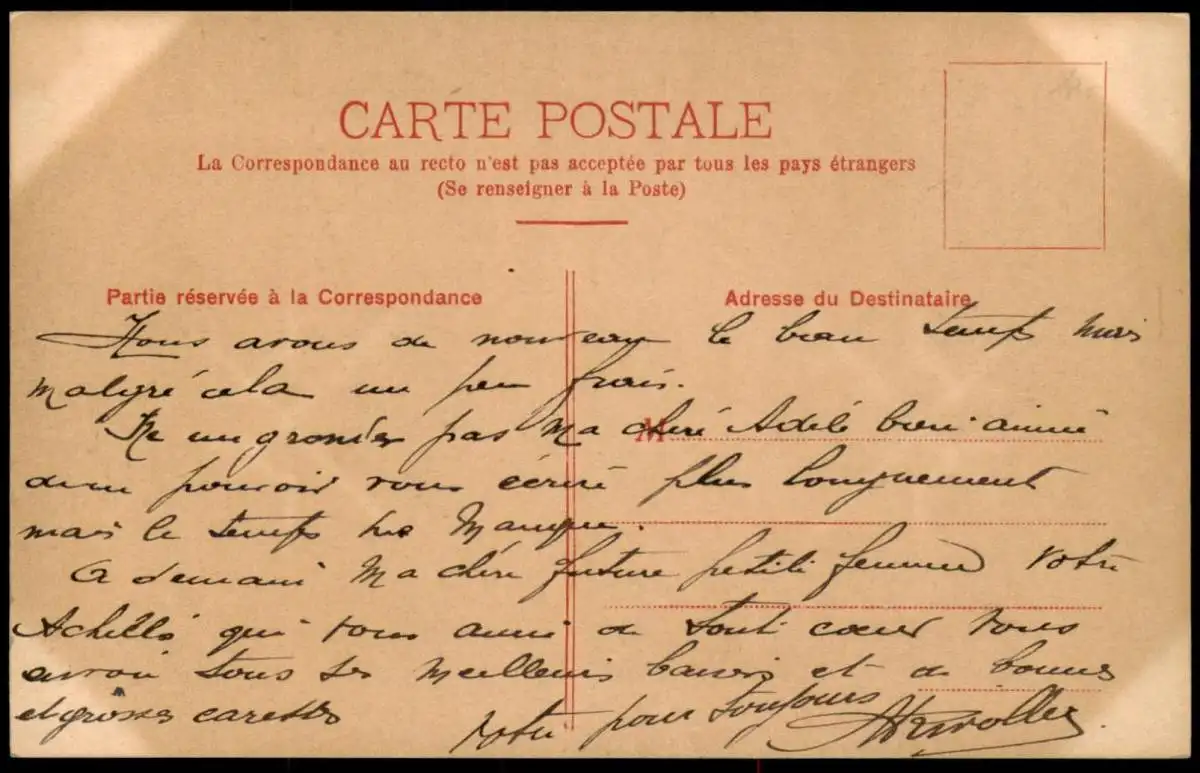 CARTE POSTALE
La Correspondance au recto n'est pas acceptée par tous les pays étrangers
(Se renseigner à la Poste)
Partie réservée à la Correspondance
Adresse du Destinataire
Nous avons de nouveau le beau temps mais
malgré cela un peu frais.
M
Ne me grondez pas Ma chère Adèle bien aimé
de ne pouvoir vous écrire plus longuement
mais le temps me Manque.
A demain Ma chère future petite femme votre
Achille qui vous aime de tout cœur vous
envoi tous ses meilleurs baisers et de bonnes
et grosses caresses
votre pour toujours